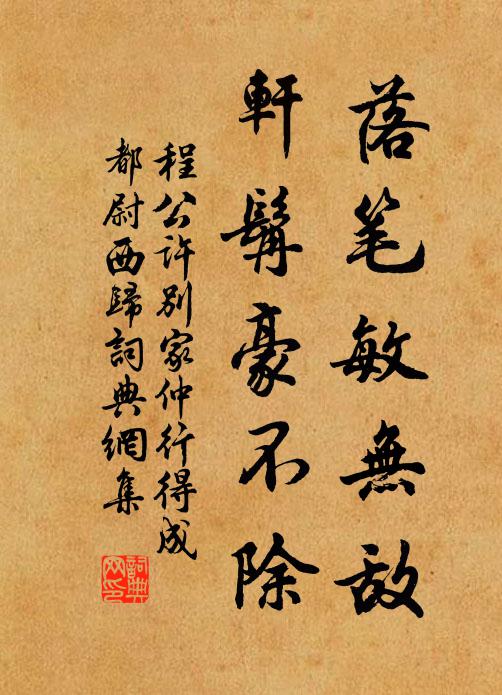 落笔敏無敌
軒髯豪不除
程公許别家仲行得成
都尉西歸詞典網集
詞典
网印